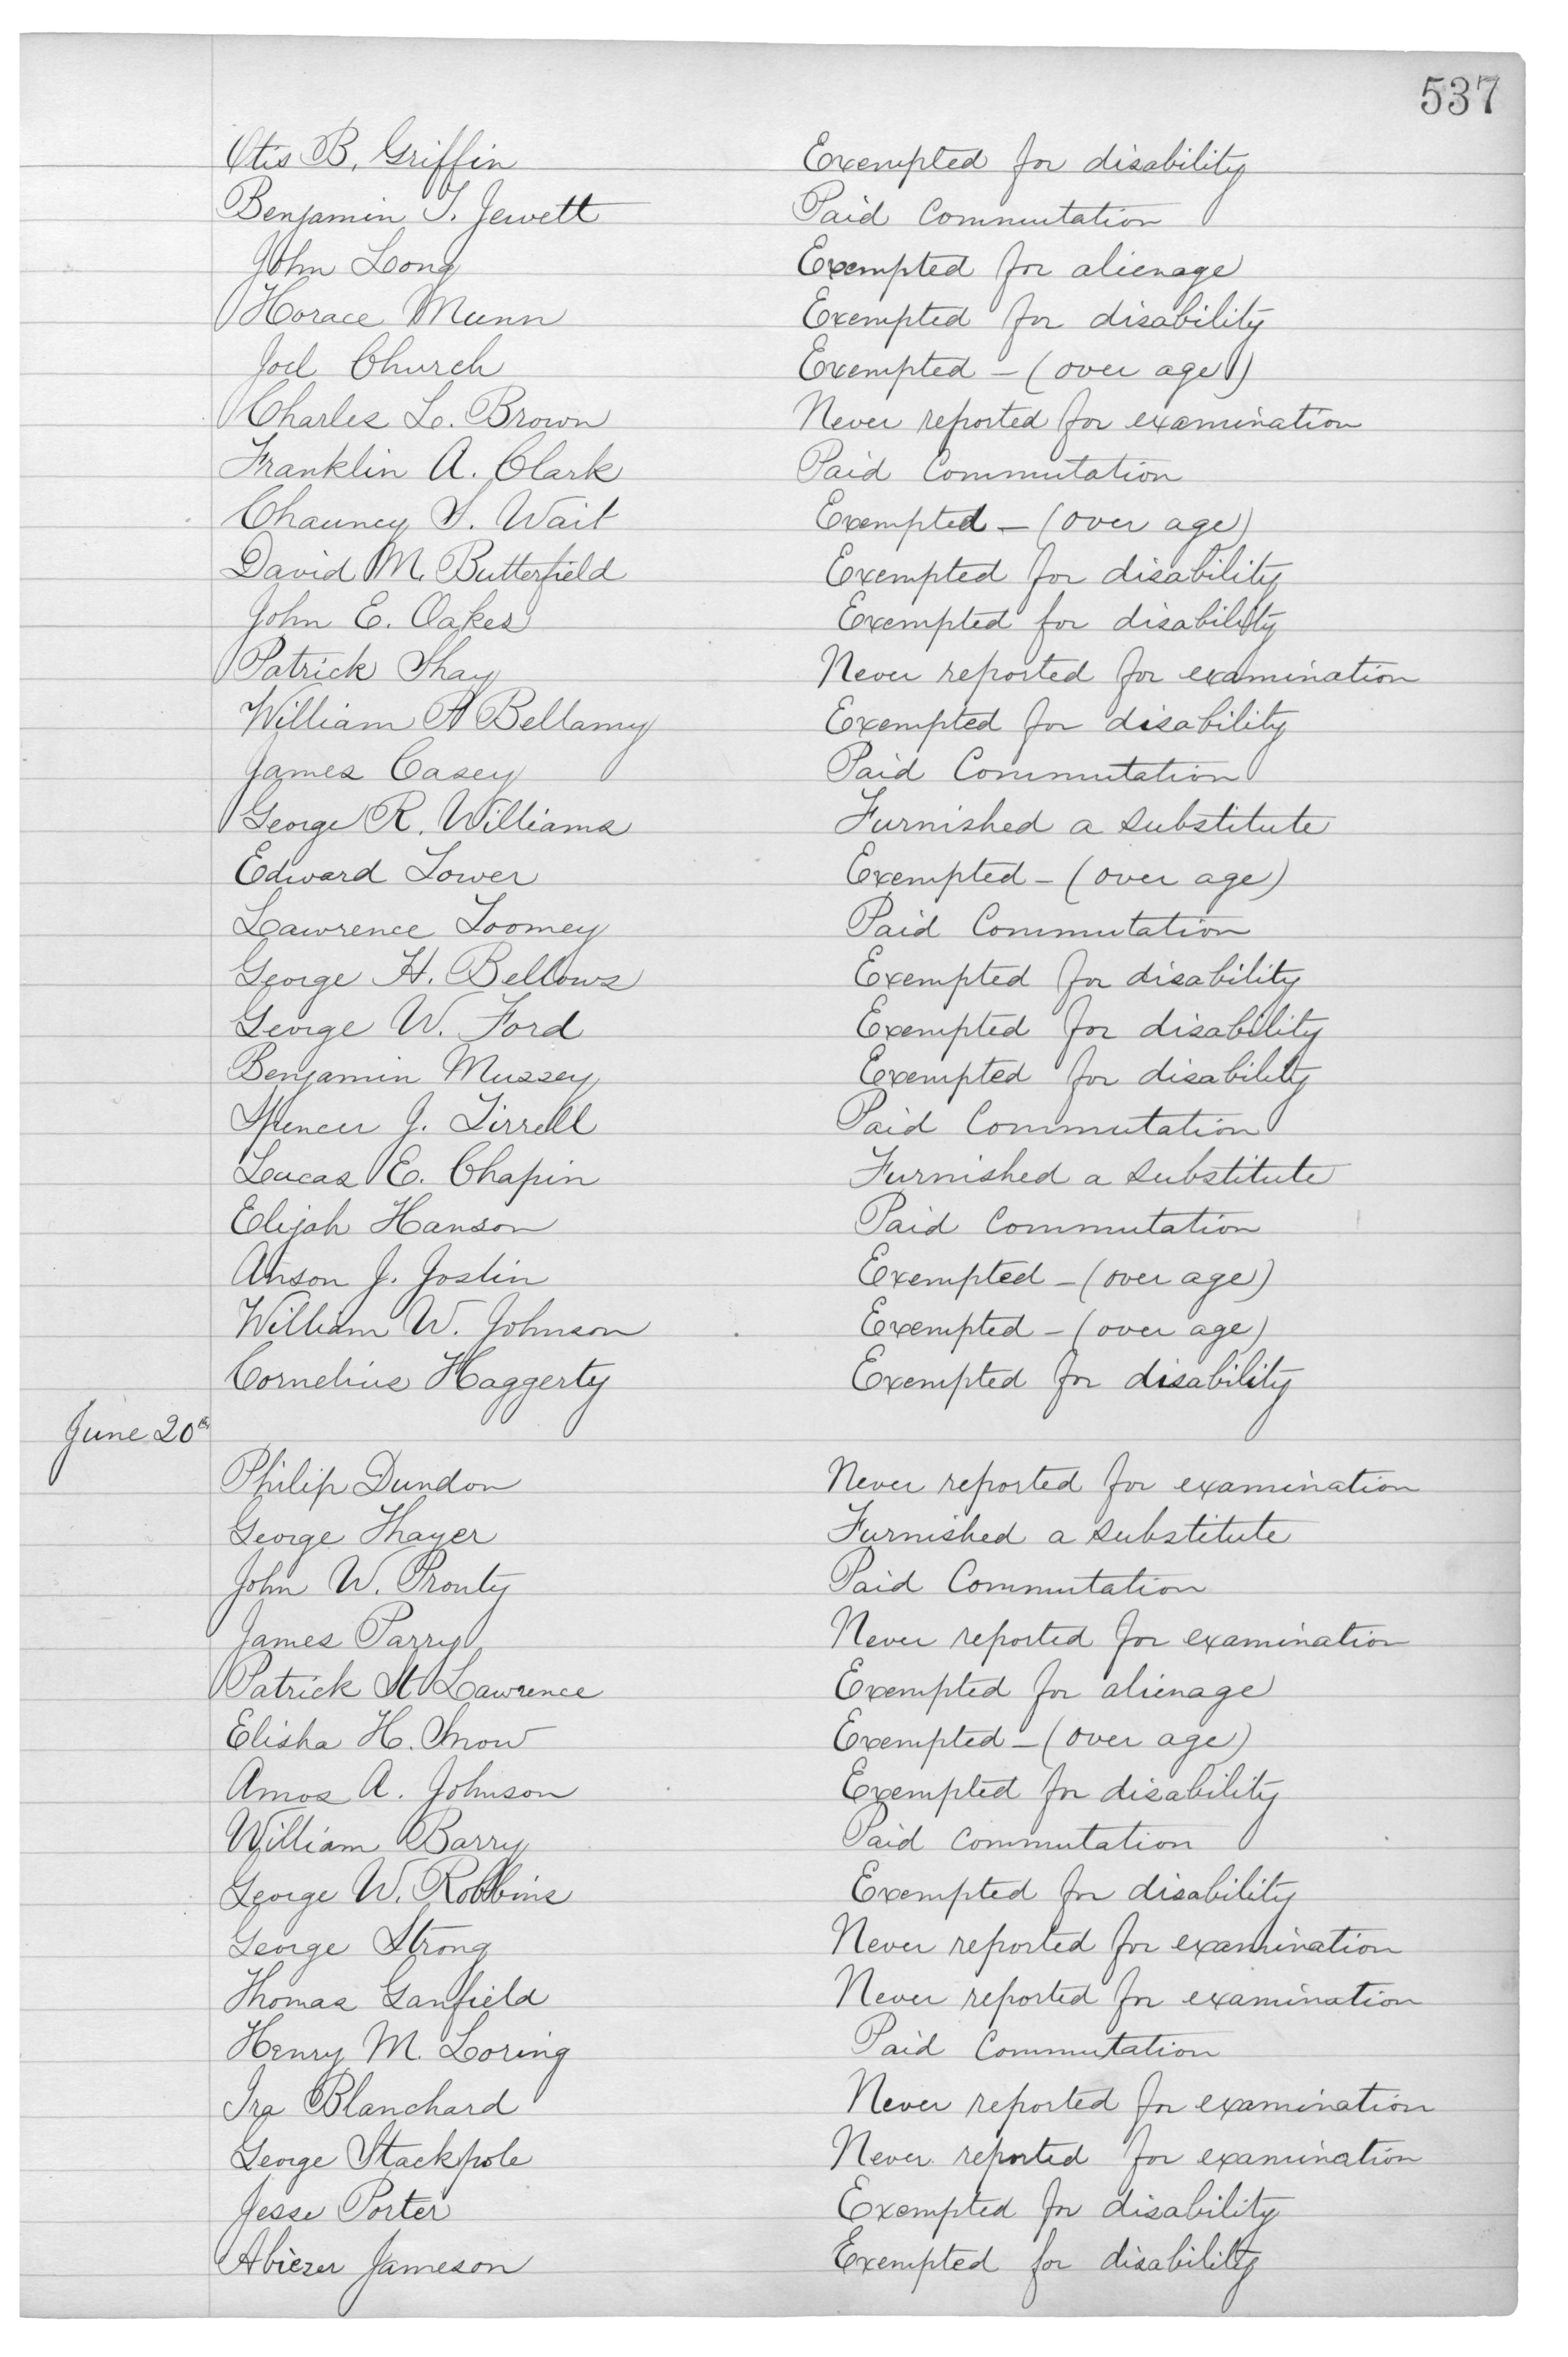 537
Otis B. Griffin Exempted for disability
Benjamin T. Jewett Paid Commutation
John Long Exempted for alienage
Horace Munn Exempted for disability
Joel Church Exempted - (over age)
Charles L. Brown Never reported for examination
Franklin A. Clark Paid Commutation
Chauncy S. Wait Exempted - (over age)
David M. Butterfield Exempted for disability
John E. Oakes Exempted for disability
Patrick Shay Never reported for examination
William A Bellamy Exempted for disability
James Casey Paid Commutation
George R. Williams Furnished a substitute
Edward Tower Exempted - (over age)
Lawrence Toomey Paid Commutation
George H. Bellows Exempted for disability
George W. Ford Exempted for disability
Benjamin Mussey Exempted for disability
Spencer J. Tirrell Paid Commutation
Lucas E. Chapin Furnished a substitute
Elijah Hanson Paid Commutation
Anson J. Joslin Exempted - (over age)
William W. Johnson Exempted - (over age)
Cornelius Haggerty Exempted for disability
June 20th
Philip Dundon Never reported for examination
George Thayer Furnished a substitute
John W. Prouty Paid Commutation
James Parry Never reported for examination
Patrick St Lawrence Exempted for alienage
Elisha H. Snow Exempted - (over age)
Amos A. Johnson Exempted for disability
William Barry Paid Commutation
George W. Robbins Exempted for disability
George Strong Never reported for examination
Thomas Ganfield Never reported for examination
Henry M. Loring Paid Commutation
Ira Blanchard Never reported for examination
George Stackpole Never reported for examination
Jesse Porter Exempted for disability
Abiezer Jameson Exempted for disability